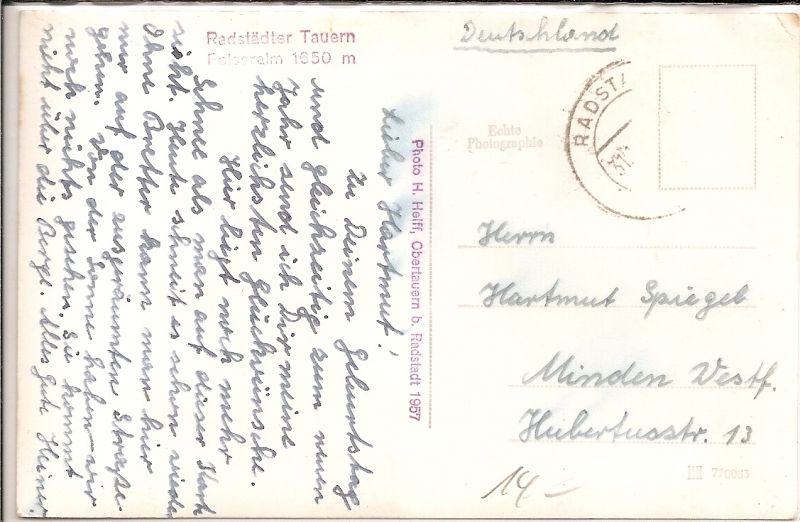 Radstädter Tauern
Felseralm 1650 m
Lieber Hartmut!
Zu Deinem Geburtstag
und gleichzeitig zum neuen
Jahr send ich Dir meine
herzlichsten Glückwünsche.
Hier liegt noch mehr
Schnee als man auf dieser Karte
sieht. Heute schneit es schon wieder
Ohne Bretter kann man hier
nur auf der ausgeräumten Straße
gehen. Von der Sonne haben wir
noch nichts gesehen. Sie kommt
nicht über die Berge. Alles Gute Heiner
Photo H. Helff, Obertauern b. Radstadt 1957
Deutschland
RADSTA
Echte
Photographie
Herrn
Hartmut Spiegel
Minden Westf.
Hubertusstr. 13
14.-